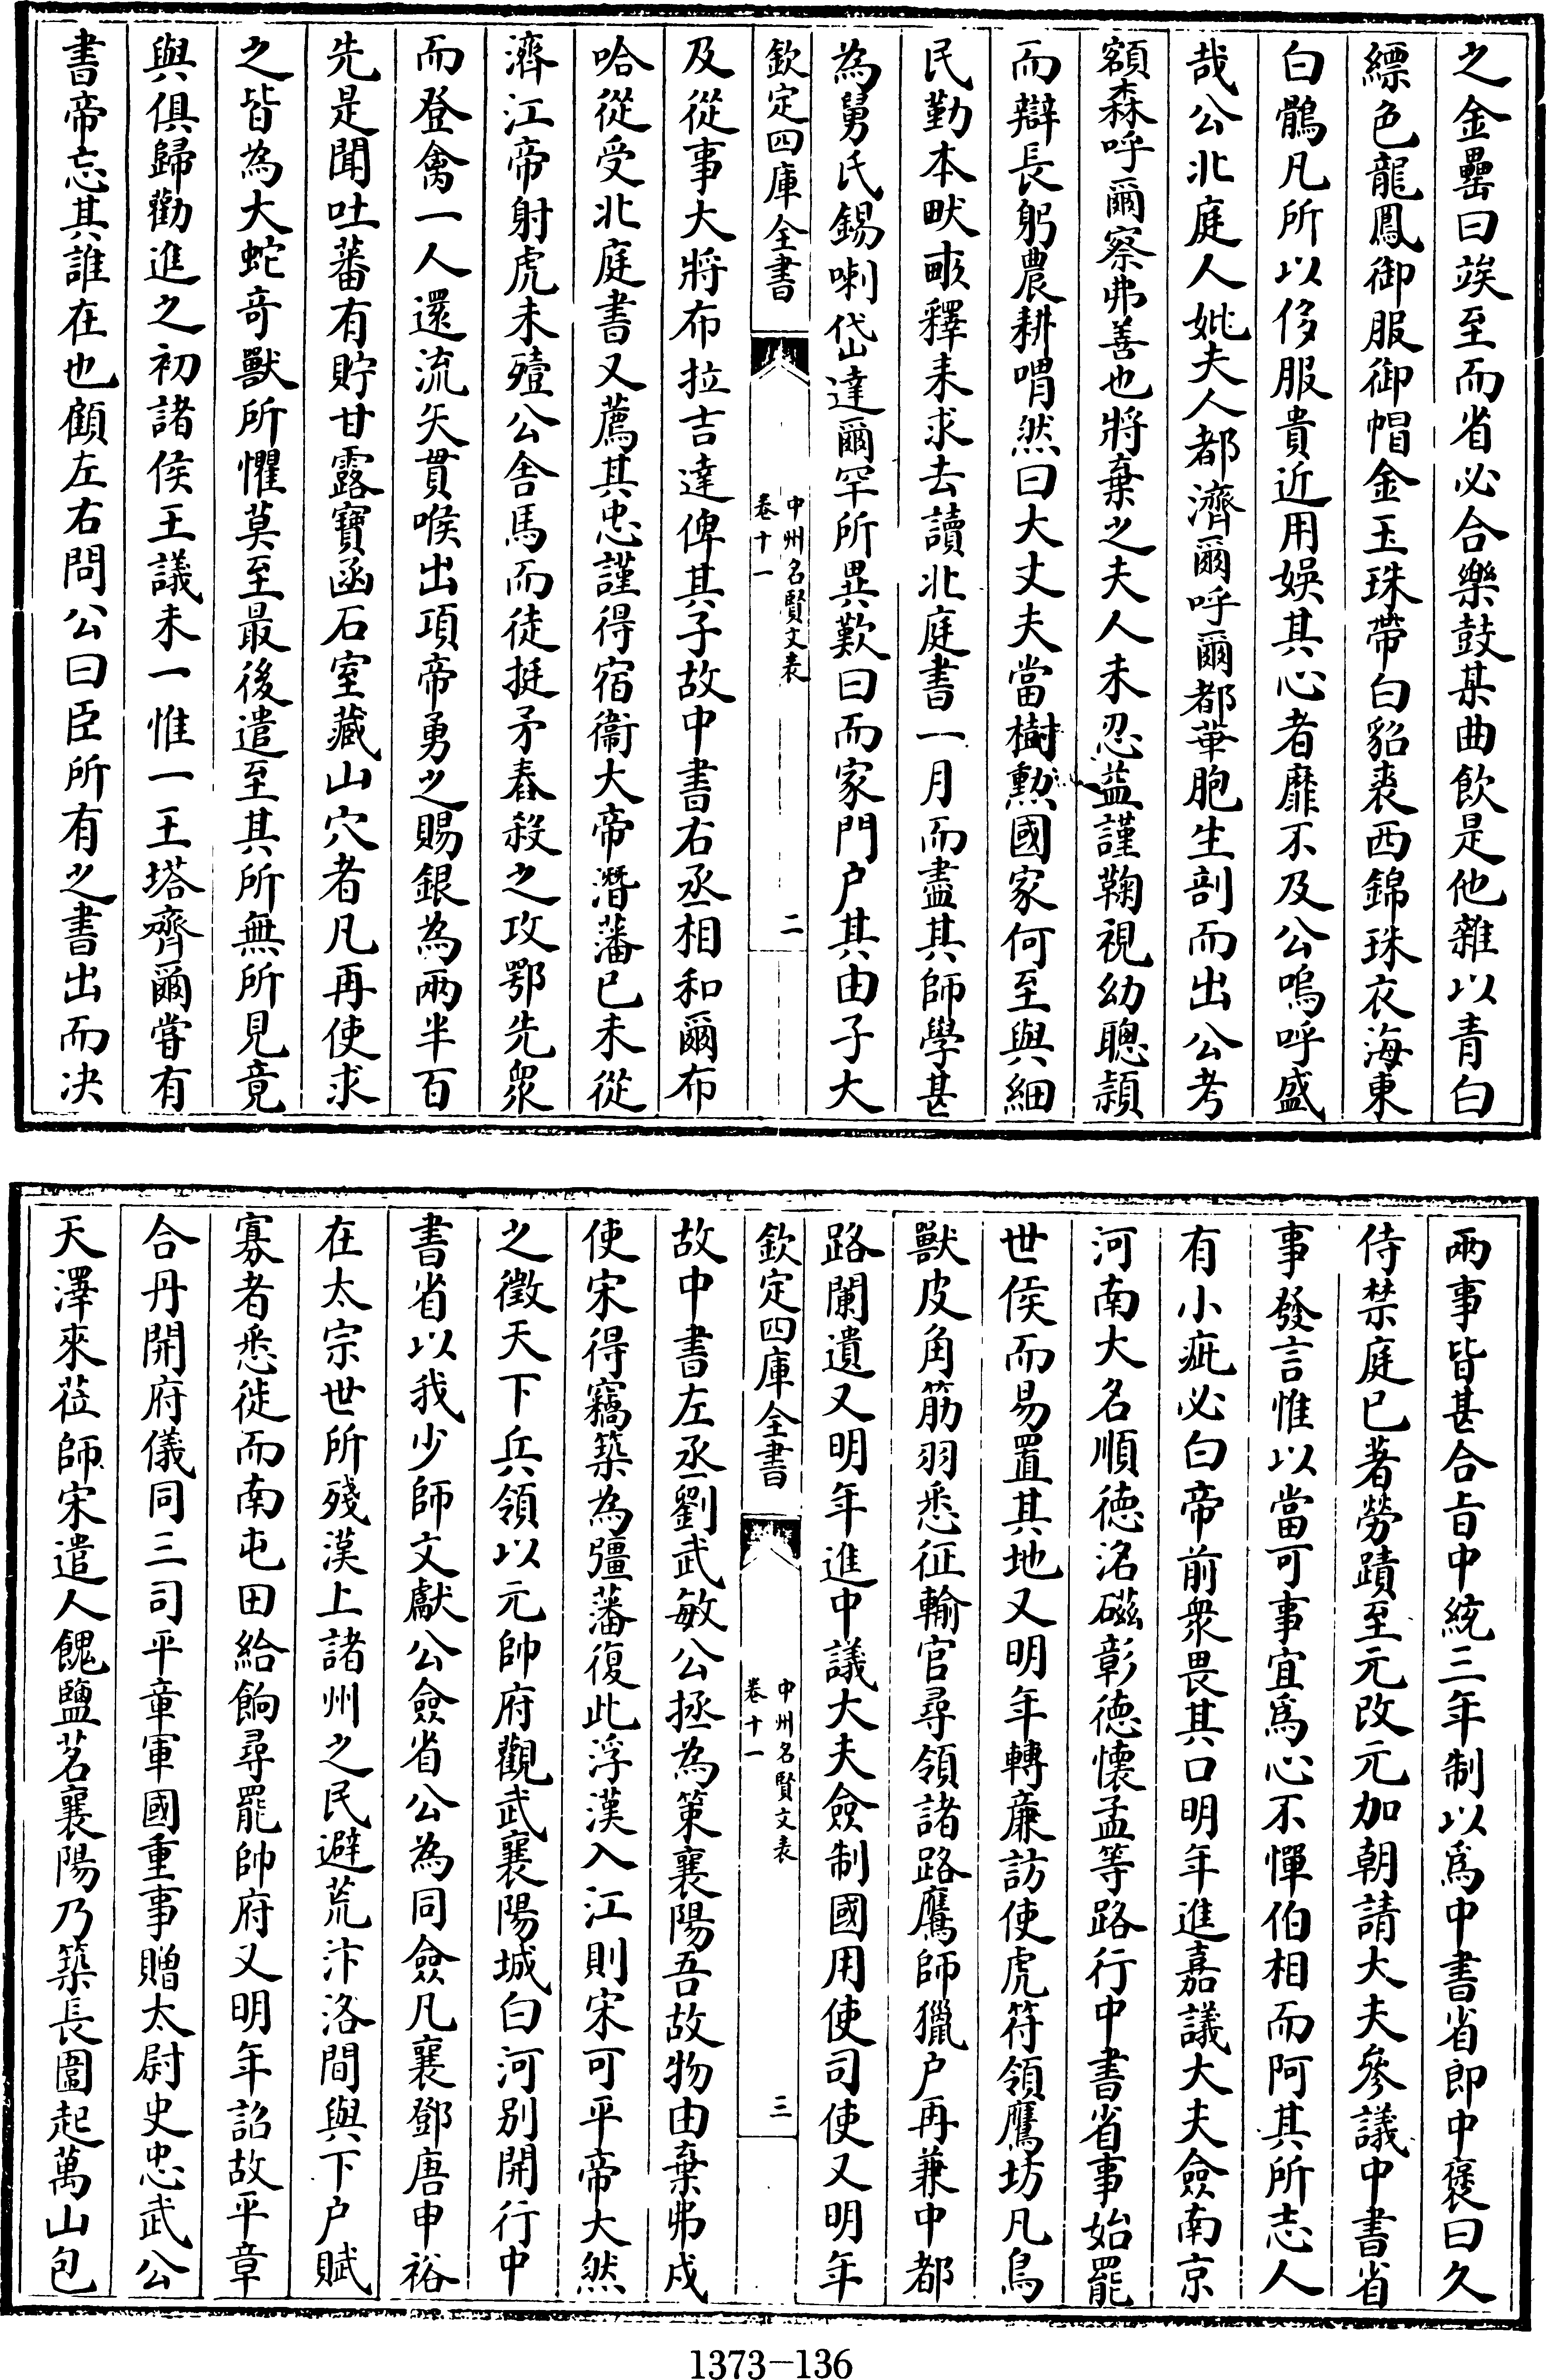 之金罍曰竢至而省必合樂鼓某曲飲是他雜以青白
縹色龍鳳御服御帽金玉珠帶白貂裘西錦珠衣海東
白鶻凡所以侈服貴近用娛其心者靡不及公嗚呼盛
哉公北庭人妣夫人都濟爾呼爾都華胞生剖而出公考
額森呼爾察弗善也將棄之夫人未忍益謹鞠視幼聰頴
而辯長躬農耕喟然曰大丈夫當樹勲國家何至與細
民勤本畎畝釋耒求去讀北庭書一月而盡其師學甚
為舅氏錫喇岱達爾罕所異歎曰而家門户其由子大
欽定四庫全書
中州名賢文表
卷十一
二
及從事大將布拉吉達俾其子故中書右丞相和爾布
哈從受北庭書又薦其忠謹得宿衞大帝潛藩已未從
濟江帝射虎未殪公舍馬而徒挺矛舂殺之攻鄂先衆
而登禽一人還流矢貫喉出項帝勇之賜銀為兩半百
先是聞吐蕃有貯甘露寶函石室藏山穴者凡再使求
之皆為大蛇奇獸所懼莫至最後遣至其所無所見竟
與俱歸勸進之初諸侯王議未一惟一王塔齊爾嘗有
書帝忘其誰在也顧左右問公曰臣所有之書出而决
兩事皆甚合旨中統三年制以爲中書省郎中褒曰久
侍禁庭已著勞蹟至元改元加朝請大夫參議中書省
事發言惟以當可事宜爲心不憚伯相而阿其所志人
有小疵必白帝前衆畏其口明年進嘉議大夫僉南京
河南大名順徳洺磁彰徳懷孟等路行中書省事始罷
世侯而易置其地又明年轉廉訪使虎符領鷹坊凡鳥
獸皮角筋羽悉征輸官尋領諸路鷹師獵户再兼中都
路闌遺又明年進中議大夫僉制國用使司使又明年
欽定四庫全書
中州名賢文表
卷十一
三
故中書左丞劉武敏公拯為策襄陽吾故物由棄弗戍
使宋得竊築為彊藩復此浮漢入江則宋可平帝大然
之徵天下兵領以元帥府觀武襄陽城白河别開行中
書省以我少師文獻公僉省公為同僉凡襄鄧唐申裕
在太宗世所殘漢上諸州之民避荒汴洛間與下户賦
寡者悉徙而南屯田給餉尋罷帥府又明年詔故平章
合丹開府儀同三司平章軍國重事贈太尉史忠武公
天澤來莅師宋遣人餽鹽茗襄陽乃築長圍起萬山包
1373—136